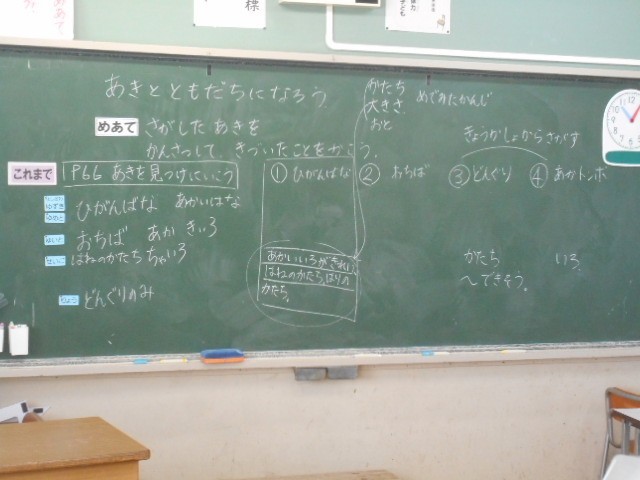 あきとともだちになろう
めあて さがしたあきを
かんさつして、きづいたことをかこう。
かたち めでみたかんじ
大きさ
おと
きょうかしょからさがす
これまで P66 あきを見つけにいこう
① ひがんばな ② おちば ③ どんぐり ④ あかトンボ
ひがんばな あかいはな
おちば あか きいろ
はねのかたち ちゃいろ
どんぐりのみ
あかいいろがきれい
はねのかたち はりの
かたち。
かたち いろ
〜できそう。